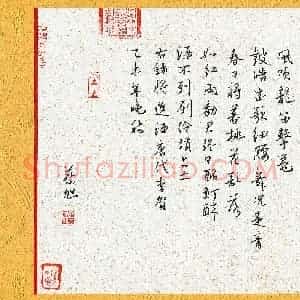 風吹龍笛擊鼍
鼓皓齒歌細腰舞況是青
春日將暮桃花亂落
如紅雨勸君終日酩酊醉
酒不到劉伶墳上土
右錄將進酒唐李賀
乙未年晚秋
Shufaziliao.COM